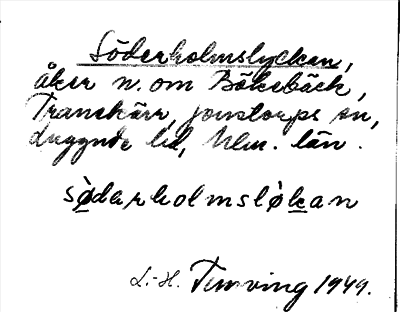 Söderholmslyckan,
åker n. om Bökebäck,
Tranekärr, Jonstorps sn,
Luggude hd, Mlm. län.
sö̀derholmslø̀kan
L.-H. Temving 1949.